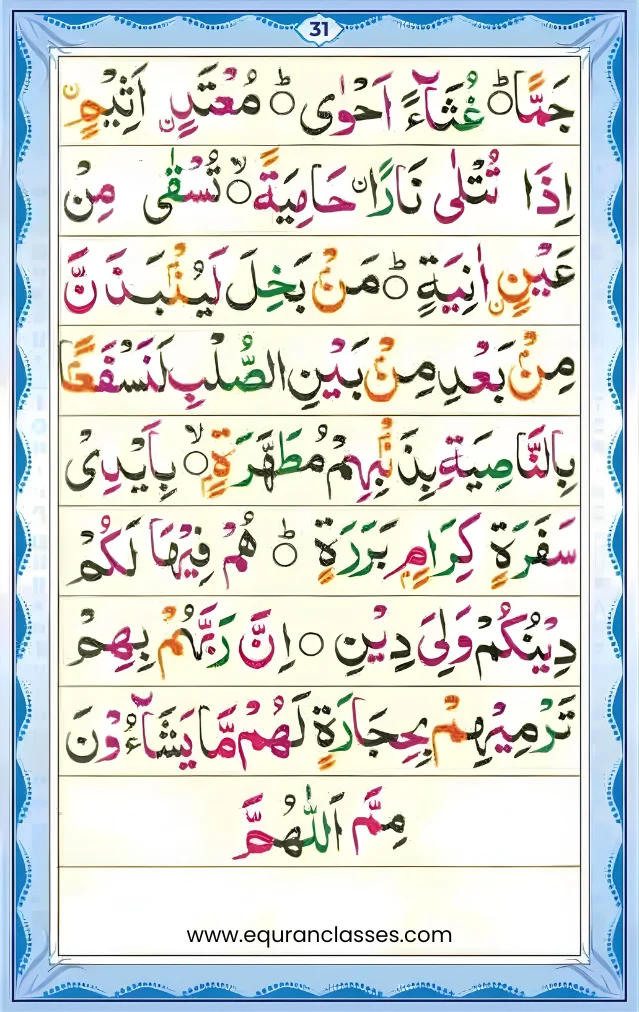 31
جَمًّا ؕ غُثَآءً اَحْوٰی ؕ مُعْتَدٍ اَثِیْمٍ
اِذَا تُتْلٰی نَارًا حَامِیَةً ۙ تُسْقٰی مِنْ
عَیْنٍ اٰنِیَةٍ ؕ مَنْۢ بَخِلَ لَیُنْۢبَذَنَّ
مِنْۢ بَعْدِ مِنْۢ بَیْنِ الصُّلْبِ لَنَسْفَعًۢا
بِالنَّاصِیَةِ بِذَنْۢبِهِمْ مُطَهَّرَةٍۭ ۙ بِاَیْدِیْ
سَفَرَةٍ كِرَامٍۭ بَرَرَةٍ ؕ هُمْ فِیْهَا لَكُمْ
دِیْنُكُمْ وَلِیَ دِیْنِ ○ اِنَّ رَبَّهُمْ بِهِمْ
تَرْمِیْهِمْ بِحِجَارَةٍ لَهُمْ مَّا یَشَآءُوْنَ
مِمَّ اَللّٰهُمَّ
www.equranclasses.com